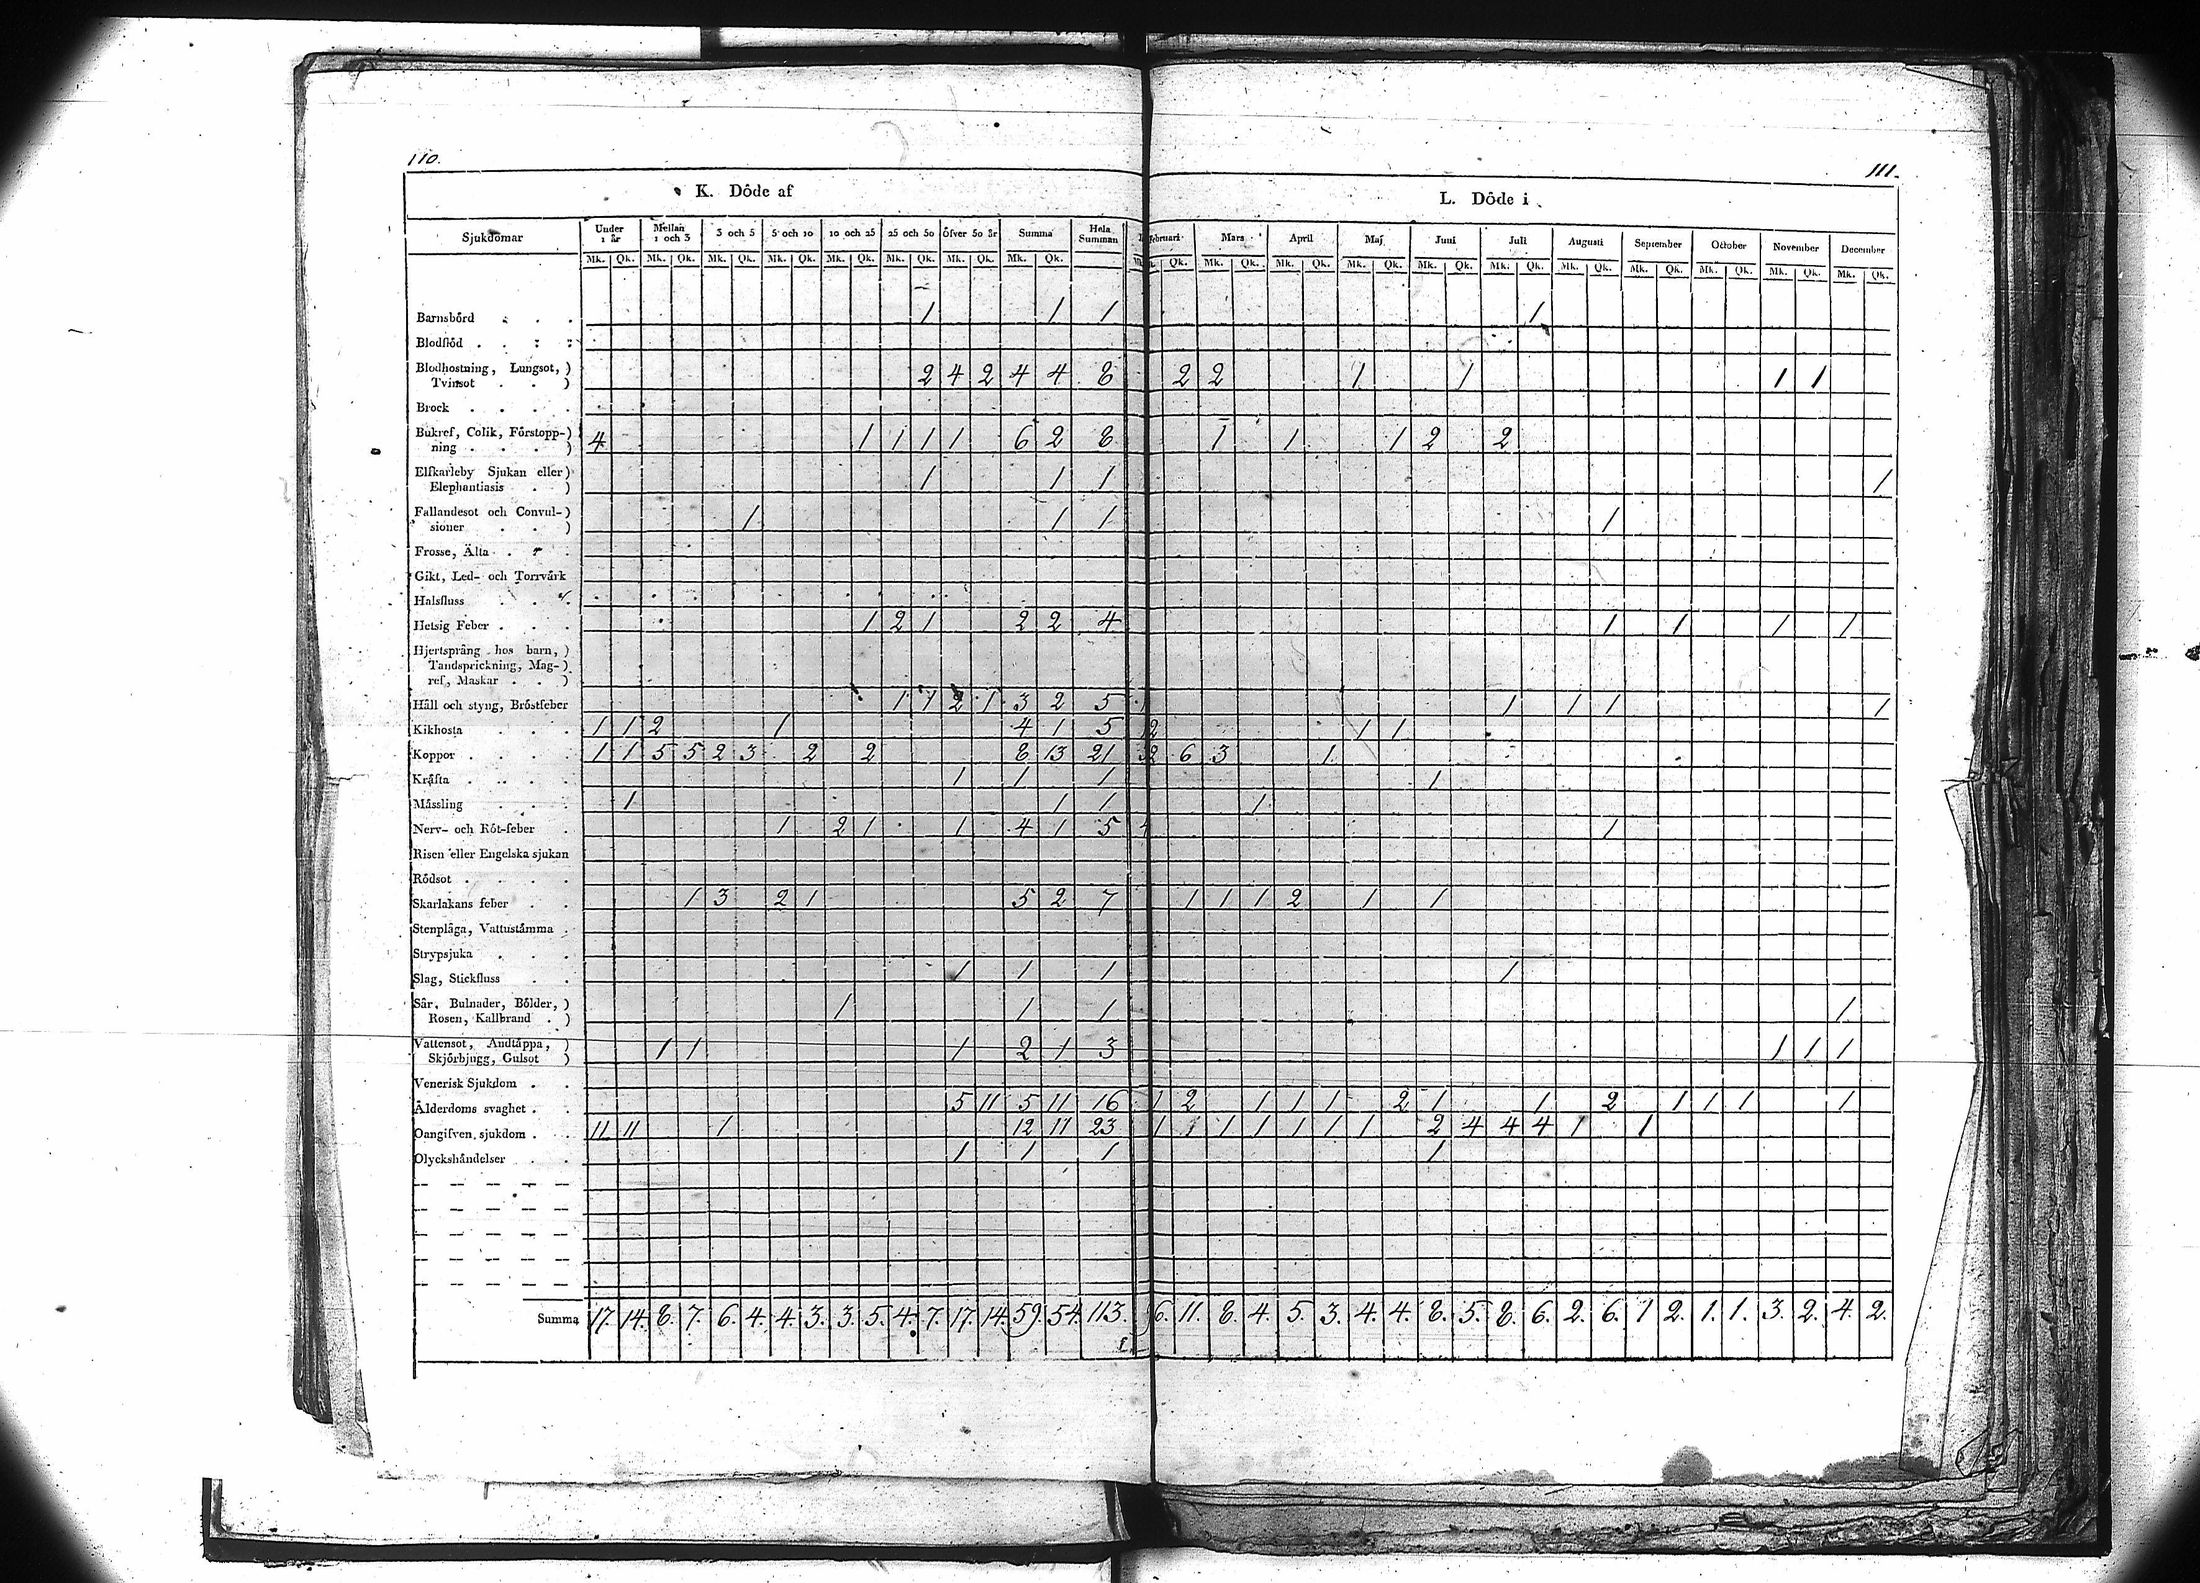 110.
111.
K. Döde af
L. Döde i
Sjukdomar Under 1 år Mellan 1 och 3 3 och 5 5 och 10 10 och 25 25 och 50 Öfver 50 år Summa Hela Summan
Februari Mars April Maj Juni Juli Augusti September October November December
Mk. Qk. Mk. Qk. Mk. Qk. Mk. Qk. Mk. Qk. Mk. Qk. Mk. Qk. Mk. Qk.
Qk. Mk. Qk. Mk. Qk. Mk. Qk. Mk. Qk. Mk. Qk. Mk. Qk. Mk. Qk. Mk. Qk. Mk. Qk. Mk. Qk.
Barnsbörd 1 1 1 1
Blodflöd
Blodhostning, Lungsot,)
Tvinsot ) 2 4 2 4 4 8 2 2 1 1 1 1
Brock
Bukref, Colik, Förstopp-)
ning ) 4 1 1 1 1 6 2 8 1 1 1 2 2
Elfkarleby Sjukan eller)
Elephantiasis ) 1 1 1 1
Fallandesot och Convul-)
sioner ) 1 1 1 1
Frosse, Älta
Gikt, Led- och Torrvärk
Halsfluss
Hetsig Feber 1 2 1 2 2 4 1 1 1 1
Hjertsprång hos barn,)
Tandsprickning, Mag-)
ref, Maskar )
Håll och styng, Bröstfeber 1 1 2 1 3 2 5 1 1 1 1
Kikhosta 1 1 2 1 4 1 5 2 1 1
Koppor 1 1 5 5 2 3 2 2 8 13 21 2 6 3 1
Kräfta 1 1 1 1
Mässling 1 1 1 1
Nerv- och Röt-feber 1 2 1 1 4 1 5 1
Risen eller Engelska sjukan
Rödsot
Skarlakans feber 1 3 2 1 5 2 7 1 1 1 2 1 1
Stenplåga, Vattustämma
Strypsjuka
Slag, Stickfluss 1 1 1 1
Sår, Bulnader, Bölder,)
Rosen, Kallbrand ) 1 1 1 1
Vattensot, Andtäppa,)
Skjörbjugg, Gulsot ) 1 1 1 2 1 3 1 1 1
Venerisk Sjukdom
Ålderdoms svaghet 5 11 5 11 16 1 2 1 1 1 2 1 1 2 1 1 1 1
Oangifven sjukdom 11 11 1 12 11 23 1 1 1 1 1 1 1 1 2 4 4 4 1 1
Olyckshändelser 1 1 1 1
Summa 17. 14. 8. 7. 6. 4. 4. 3. 3. 5. 4. 7. 17. 14. 59. 54. 113. 6. 11. 8. 4. 5. 3. 4. 4. 8. 5. 8. 6. 2. 6. 1 2. 1. 1. 3. 2. 4. 2.